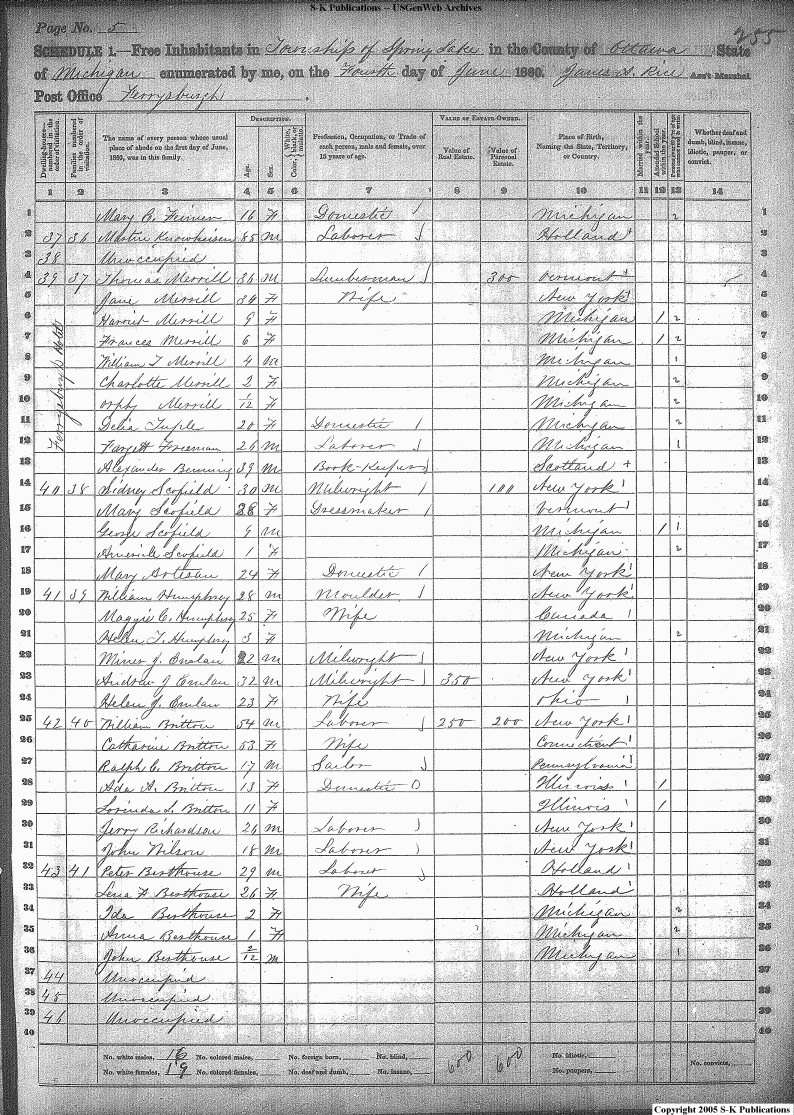 S-K Publications -- USGenWeb Archives
Page No. 5
255
SCHEDULE 1.—Free Inhabitants in Township of Spring Lake in the County of Ottawa State
of Michigan enumerated by me, on the Fourth day of June 1860. James A. Rice Ass't Marshal
Post Office Ferrysburgh.
DESCRIPTION. VALUE OF ESTATE OWNED.
Dwelling-houses—numbered in the order of visitation. Families numbered in the order of visitation. The name of every person whose usual place of abode on the first day of June, 1860, was in this family. Age. Sex. Color, White, black, or mulatto. Profession, Occupation, or Trade of each person, male and female, over 15 years of age. Value of Real Estate. Value of Personal Estate. Place of Birth, Naming the State, Territory, or Country. Married within the year. Attended School within the year. Whether deaf and dumb, blind, insane, idiotic, pauper, or convict.
1 2 3 4 5 6 7 8 9 10 11 12 13 14
1 Mary C. 16 F Domestic Michigan 2 1
2 37 36 Martin 85 M Laborer Holland 2
3 38 Unoccupied 3
4 39 37 Thomas Merrill 36 M Lumberman 300 Vermont 4
5 Jane Merrill 34 F Wife New York 5
6 Harriet Merrill 9 F Michigan 1 2 6
7 Frances Merrill 6 F Michigan 1 2 7
8 William T Merrill 4 M Michigan 1 8
9 Charlotte Merrill 2 F Michigan 2 9
10 Orphy Merrill 1/12 F Michigan 2 10
Ferrysburg Hotel
11 Delia Tuple 20 F Domestic Michigan 2 11
12 Freeman 26 M Laborer Michigan 1 12
13 Alexander Benning 39 M Book-Keeper Scotland 13
14 40 38 Sidney Scofield 30 M Milwright 100 New York 14
15 Mary Scofield 28 F Dressmaker Vermont 15
16 George Scofield 9 M Michigan 1 1 16
17 Scofield 1 F Michigan 2 17
18 Mary 24 F Domestic New York 18
19 41 39 William Humphrey 28 M Moulder New York 19
20 Maggie C. Humphrey 25 F Wife Canada 20
21 Helen T. Humphrey 3 F Michigan 2 21
22 Miner J. 22 M Milwright New York 22
23 Andrew J 32 M Milwright 350 New York 23
24 Helen J. 23 F Wife Ohio 24
25 42 40 William Britton 54 M Laborer 250 200 New York 25
26 Catharine Britton 53 F Wife Connecticut 26
27 Ralph C. Britton 17 M Sailor Pennsylvania 27
28 Ada A. Britton 13 F Domestic Illinois 1 28
29 Lorinda L. Britton 11 F Illinois 1 29
30 Jerry Richardson 26 M Laborer New York 30
31 John Wilson 18 M Laborer New York 31
32 43 41 Peter Besthouse 29 M Laborer Holland 32
33 Lena F Besthouse 26 F Wife Holland 33
34 Ida Besthouse 2 F Michigan 2 34
35 Anna Besthouse 1 F Michigan 2 35
36 John Besthouse 2/12 M Michigan 1 36
37 44 Unoccupied 37
38 45 Unoccupied 38
39 46 Unoccupied 39
40 40
No. white males, 16 No. colored males, No. foreign born, No. blind, 600 600 No. idiotic, No. convicts,
No. white females, 19 No. colored females, No. deaf and dumb, No. insane, No. paupers,
Copyright 2005 S-K Publications